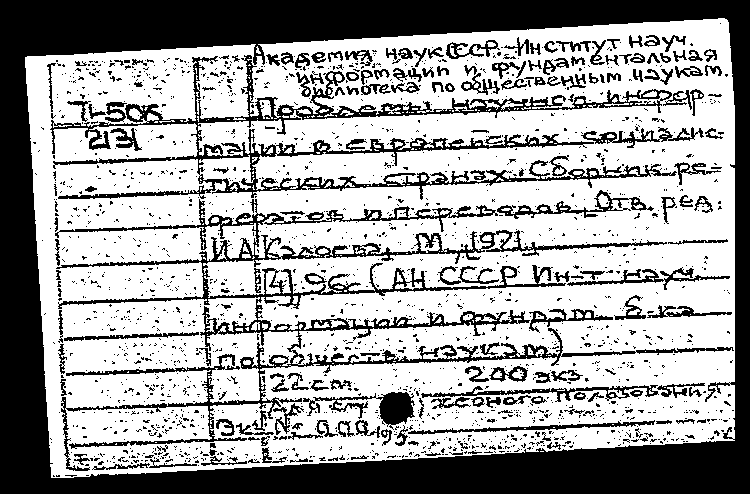 Академия наук СССР. Институт науч.
информации и фундаментальная
библиотека по общественным наукам.
71-506
2131
Проблемы научной инфор-
мации в европейских социалис-
тических странах. Сборник ре-
фератов и переводов. Отв. ред.
И А Калоева, М., 1971.
[4], 96с. (АН СССР Ин-т науч.
информации и фундам. б-ка
по обществ. наукам)
22 см. 200 экз.
Для слу жебного пользования
Экз № 000195